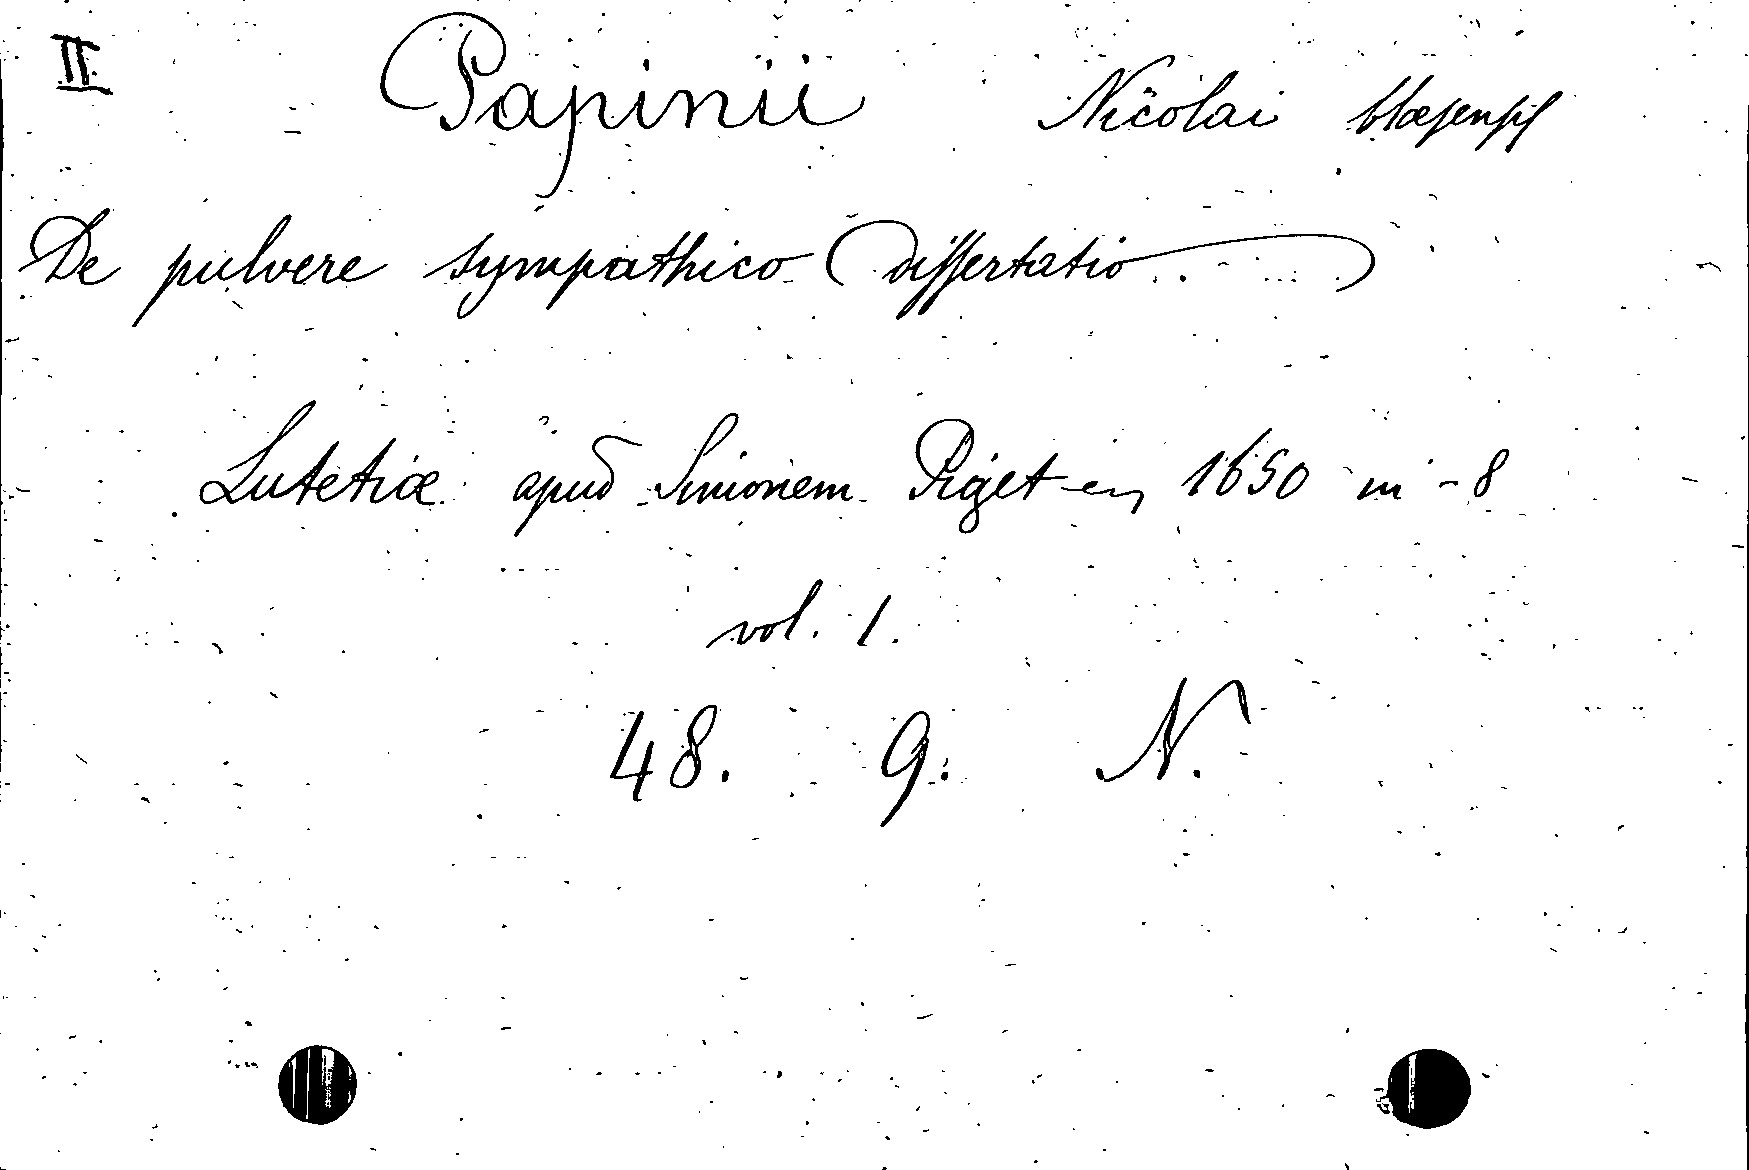 II. Papinii Nicolai blæsensis
De pulvere sympathico dissertatio
Lutetiæ apud Simonem Piget en 1650 in-8
vol. 1.
48. 9. N.